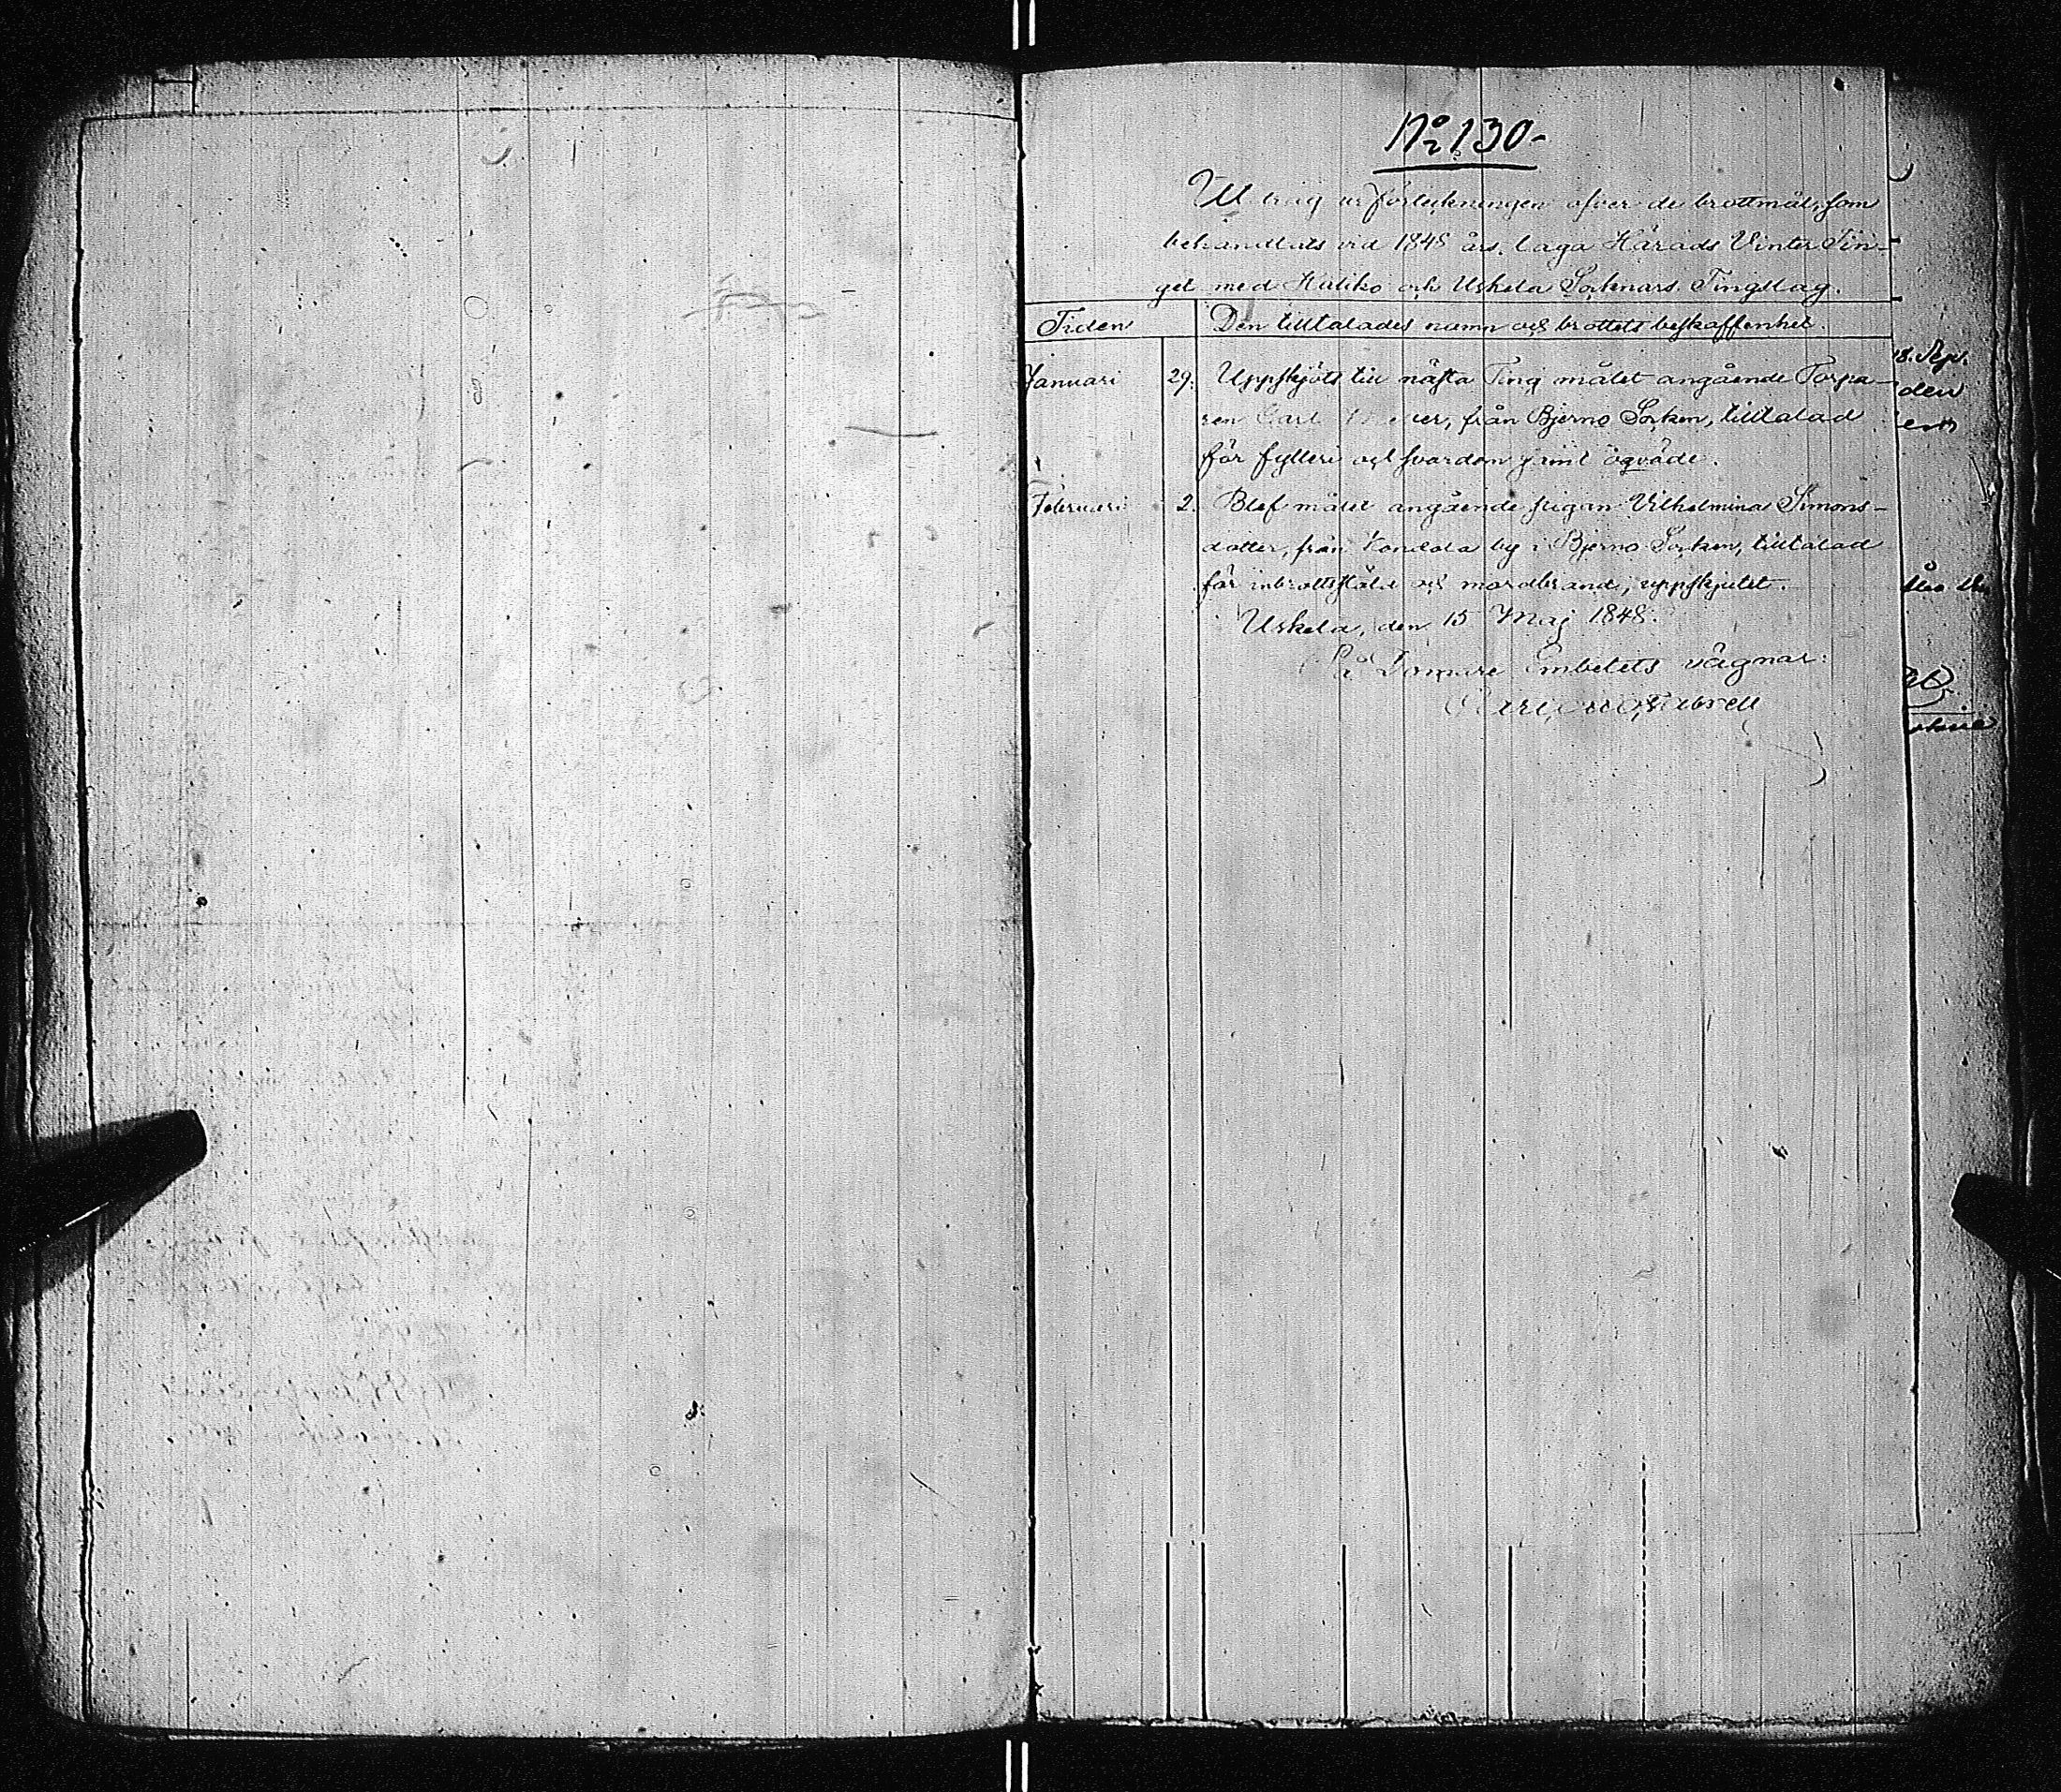 No 130-
Utdrag ur förteckningen öfver de brottmål, som
behandlats vid 1848 års laga Härads Vinter Tin-
get med Haliko och Uskela Socknars Tingslag.
Tiden
Den tilltalades namn och brottets beskaffenhet.
Januari 29. Uppskjöts till nästa Ting målet angående Torpa-
ren Carl från Bjerno Socken, tilltalad
för fylleri och svordom jämt ögvåde.
Februari 2. Blef målet angående pigan Vilhelmina Simons-
dotter, från by i Bjerno Socken, tilltalad
för inbrottsstöld och mordbrand, uppskjutet.
Uskela, den 15 Maj 1848.
På Domare Embetets vägnar:
18. Sep.
den